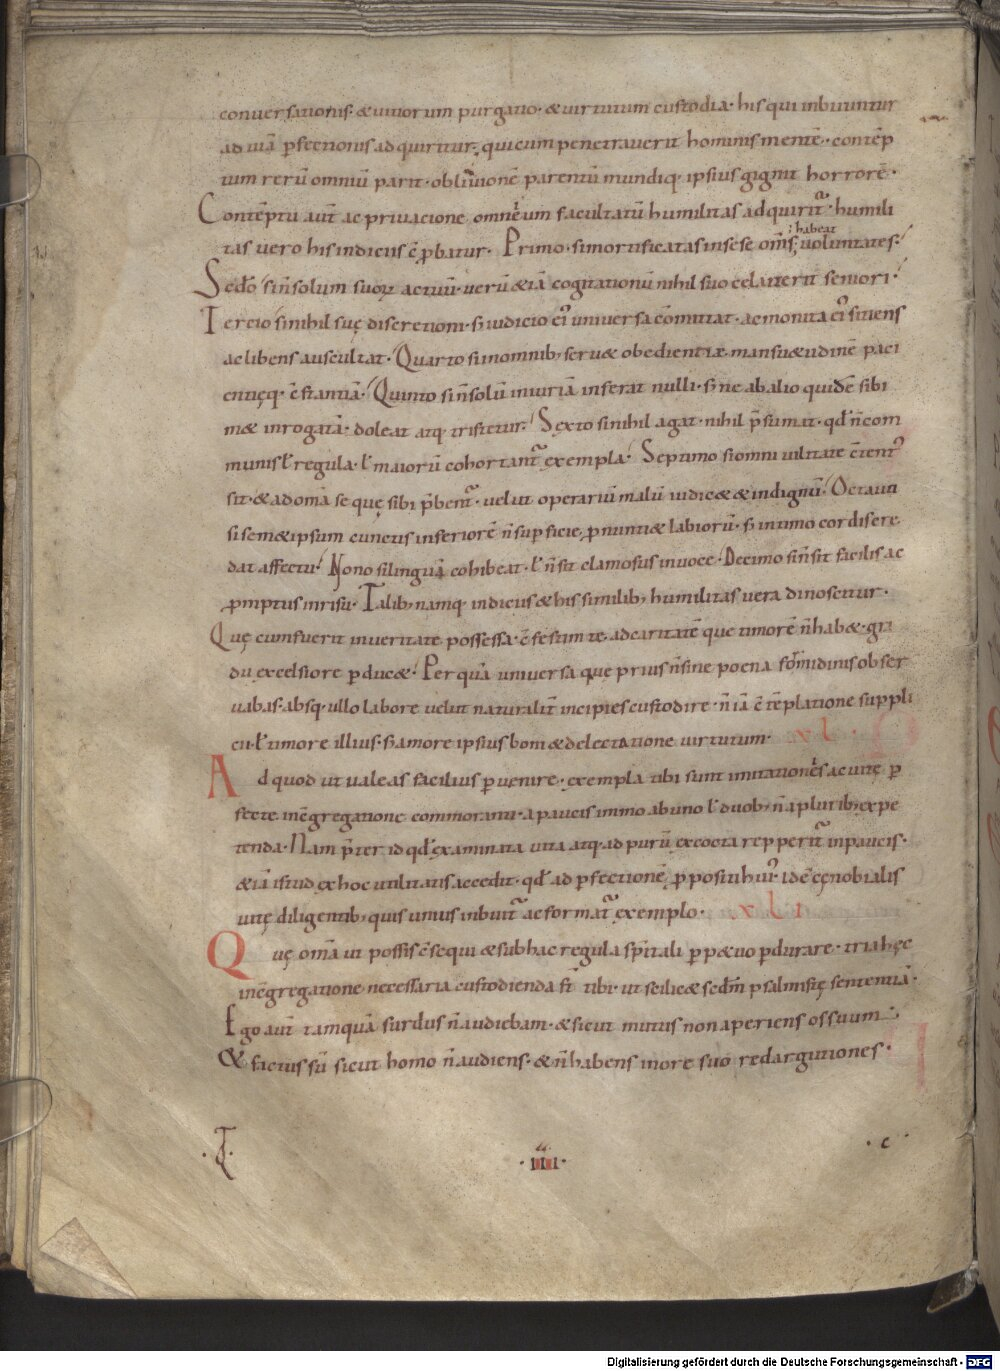 conuersationis· & uitiorum purgatio· & uirtutum custodia· his qui inbuuntur
ad uiā p̄fectionis adquiritur· qui cum penetrauerit hominis mentē· contēp
tum rerū omniū parit· obliuionē parentū mundiq· ipsius gignit horrorē·
Contēptu aut̄ ac priuacione omnium facultatū humilitas adquirit̄· humili
tas uero his indiciis ē p̄batur· Primo· si mortificatas in sese om̄s habeat uoluntates·
Sed̄o si n̄ solum suoꝝ actuū· uerū & iā cogitationū nihil suo celauerit seniori·
Tercio si nihil suę discretioni· s; iudicio ei᷒ uniuersa cōmittat· ac monita ei᷒ sitiens
ac libens auscultat· Quarto si in omnib; seruæ obedientiæ mansuetudinē paci
entięq· c̄stantiā· Quinto si n̄ solū iniuriā inferat nulli· s; ne ab alio quidē sibi
met inrogatā· doleat atq· tristetur· Sexto si nihil agat· nihil p̄sumat· qđ n̄ com
munis ł regula· ł maiorū cohortant̄ exempla· Septimo si omni uilitate c̄tent᷒
sit· & ad om̄a se quę sibi p̄bent̄· uelut operariū malū iudicæ & indignū· Octauu
si semetipsum cunctis inferiorē n̄ sup̄ficie p̄nuntiæ labiorū· s; intimo cordis cre
dat affectu· Nono si linguā cohibeat· ł n̄ sit clamosus in uoce· Decimo si n̄ sit facilis ac
p̄mptus in risu· Talib; namq; indiciis & his similib; humilitas uera dinoscitur·
Quę cum fuerit in ueritate possessa· c̄festim te ad caritatē que timorē n̄ habæ· gra
du excelsiore p̄ducæ· Per quā uniuersa que prius n̄ sine poena formidinis obser
uabas· absq· ullo labore uelut naturalit̄ incipies custodire· n̄ iā c̄tēplatione suppli
cii· ł timore illius· s; amore ipsius boni & delectatione uirtutum· xl·
Ad quod ut ualeas facilius p̄uenire· exempla tibi sunt imitationes ac uitę p̄
fecte in c̄gregatione commoranti· a paucis immo ab uno ł duob; n̄ a plurib; expe
tenda· Nam p̄ter id qđ examinata uita atq· ad purū excocta repperit̄ in paucis·
& iā istud ex hoc utilitatis accedit· qđ ad p̄fectionē p̄positi hui᷒ idē cęnobialis
uitę diligentib; quis unius inbuit̄ ac format̄ exemplo· xli
Quę om̄ia ut possis c̄sequi & sub hac regula spīrtali p̄p&uo p̄durare· tria hęc
in c̄gregatione necessaria custodienda st̄ tibi· ut scilicæ sedm̄ psalmistę sententiā·
Ego aut̄ tamquā surdus n̄ audiebam· & sicut mutus non aperiens os suum
& factus sū sicut homo n̄ audiens· & n̄ habens in ore suo redargutiones·
·IIII·
· c ·
Digitalisierung gefördert durch die Deutsche Forschungsgemeinschaft - DFG